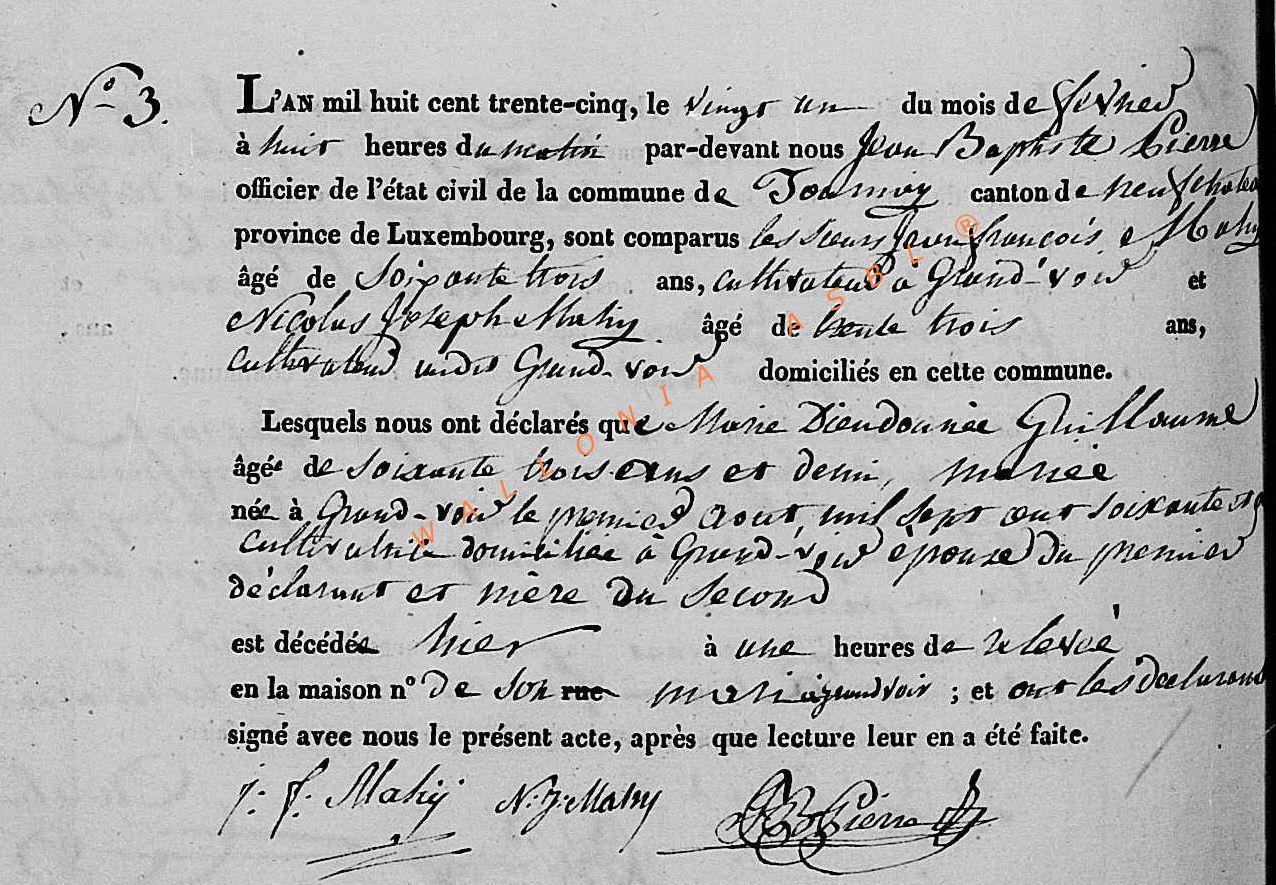 N° 3.
L'AN mil huit cent trente-cinq, le vingt un du mois de fevrier
à huit heures du matin par-devant nous Jean Baptiste Pierre
officier de l'état civil de la commune de Tournay canton de neufchateau
province de Luxembourg, sont comparus les sieurs Jean françois Mahy
âgé de soixante trois ans, cultivateur à Grand-voir et
Nicolas Joseph Mahy âgé de trente trois ans,
cultivateur Grand-voir domiciliés en cette commune.
Lesquels nous ont déclarés que Marie Dieudonnée Guillaume
âgée de soixante trois ans et demi, mariée
née à Grand-voir le premier aout, mil sept cent soixante
cultivatrice domiciliée à Grand-voir épouze du premier
déclarant et mère du second
est décédée hier à une heures de relevé
en la maison n° de son rue mari à grandvoir ; et ont les déclarans
signé avec nous le présent acte, après que lecture leur en a été faite.
J. f. Mahy N. J. Mahy JB Pierre
WALLONIA ASBL ®